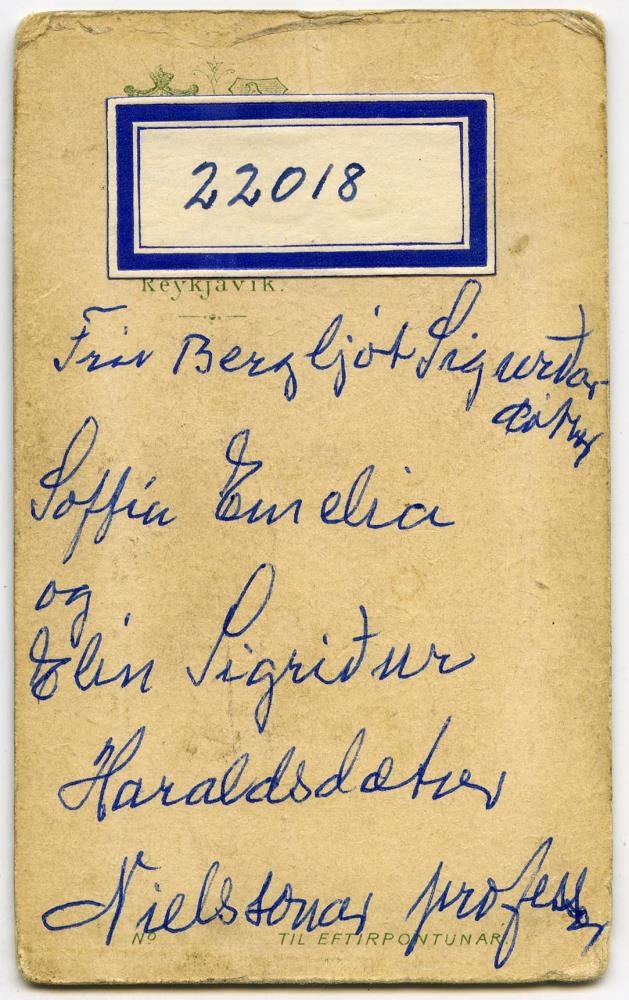 22018
Reykjavík.
Frú Bergljót Sigurðar
dóttir
Soffía Emelia
og
Elín Sigríður
Haraldsdætur
Níelssonar professor
No TIL EFTIRPÖNTUNAR.